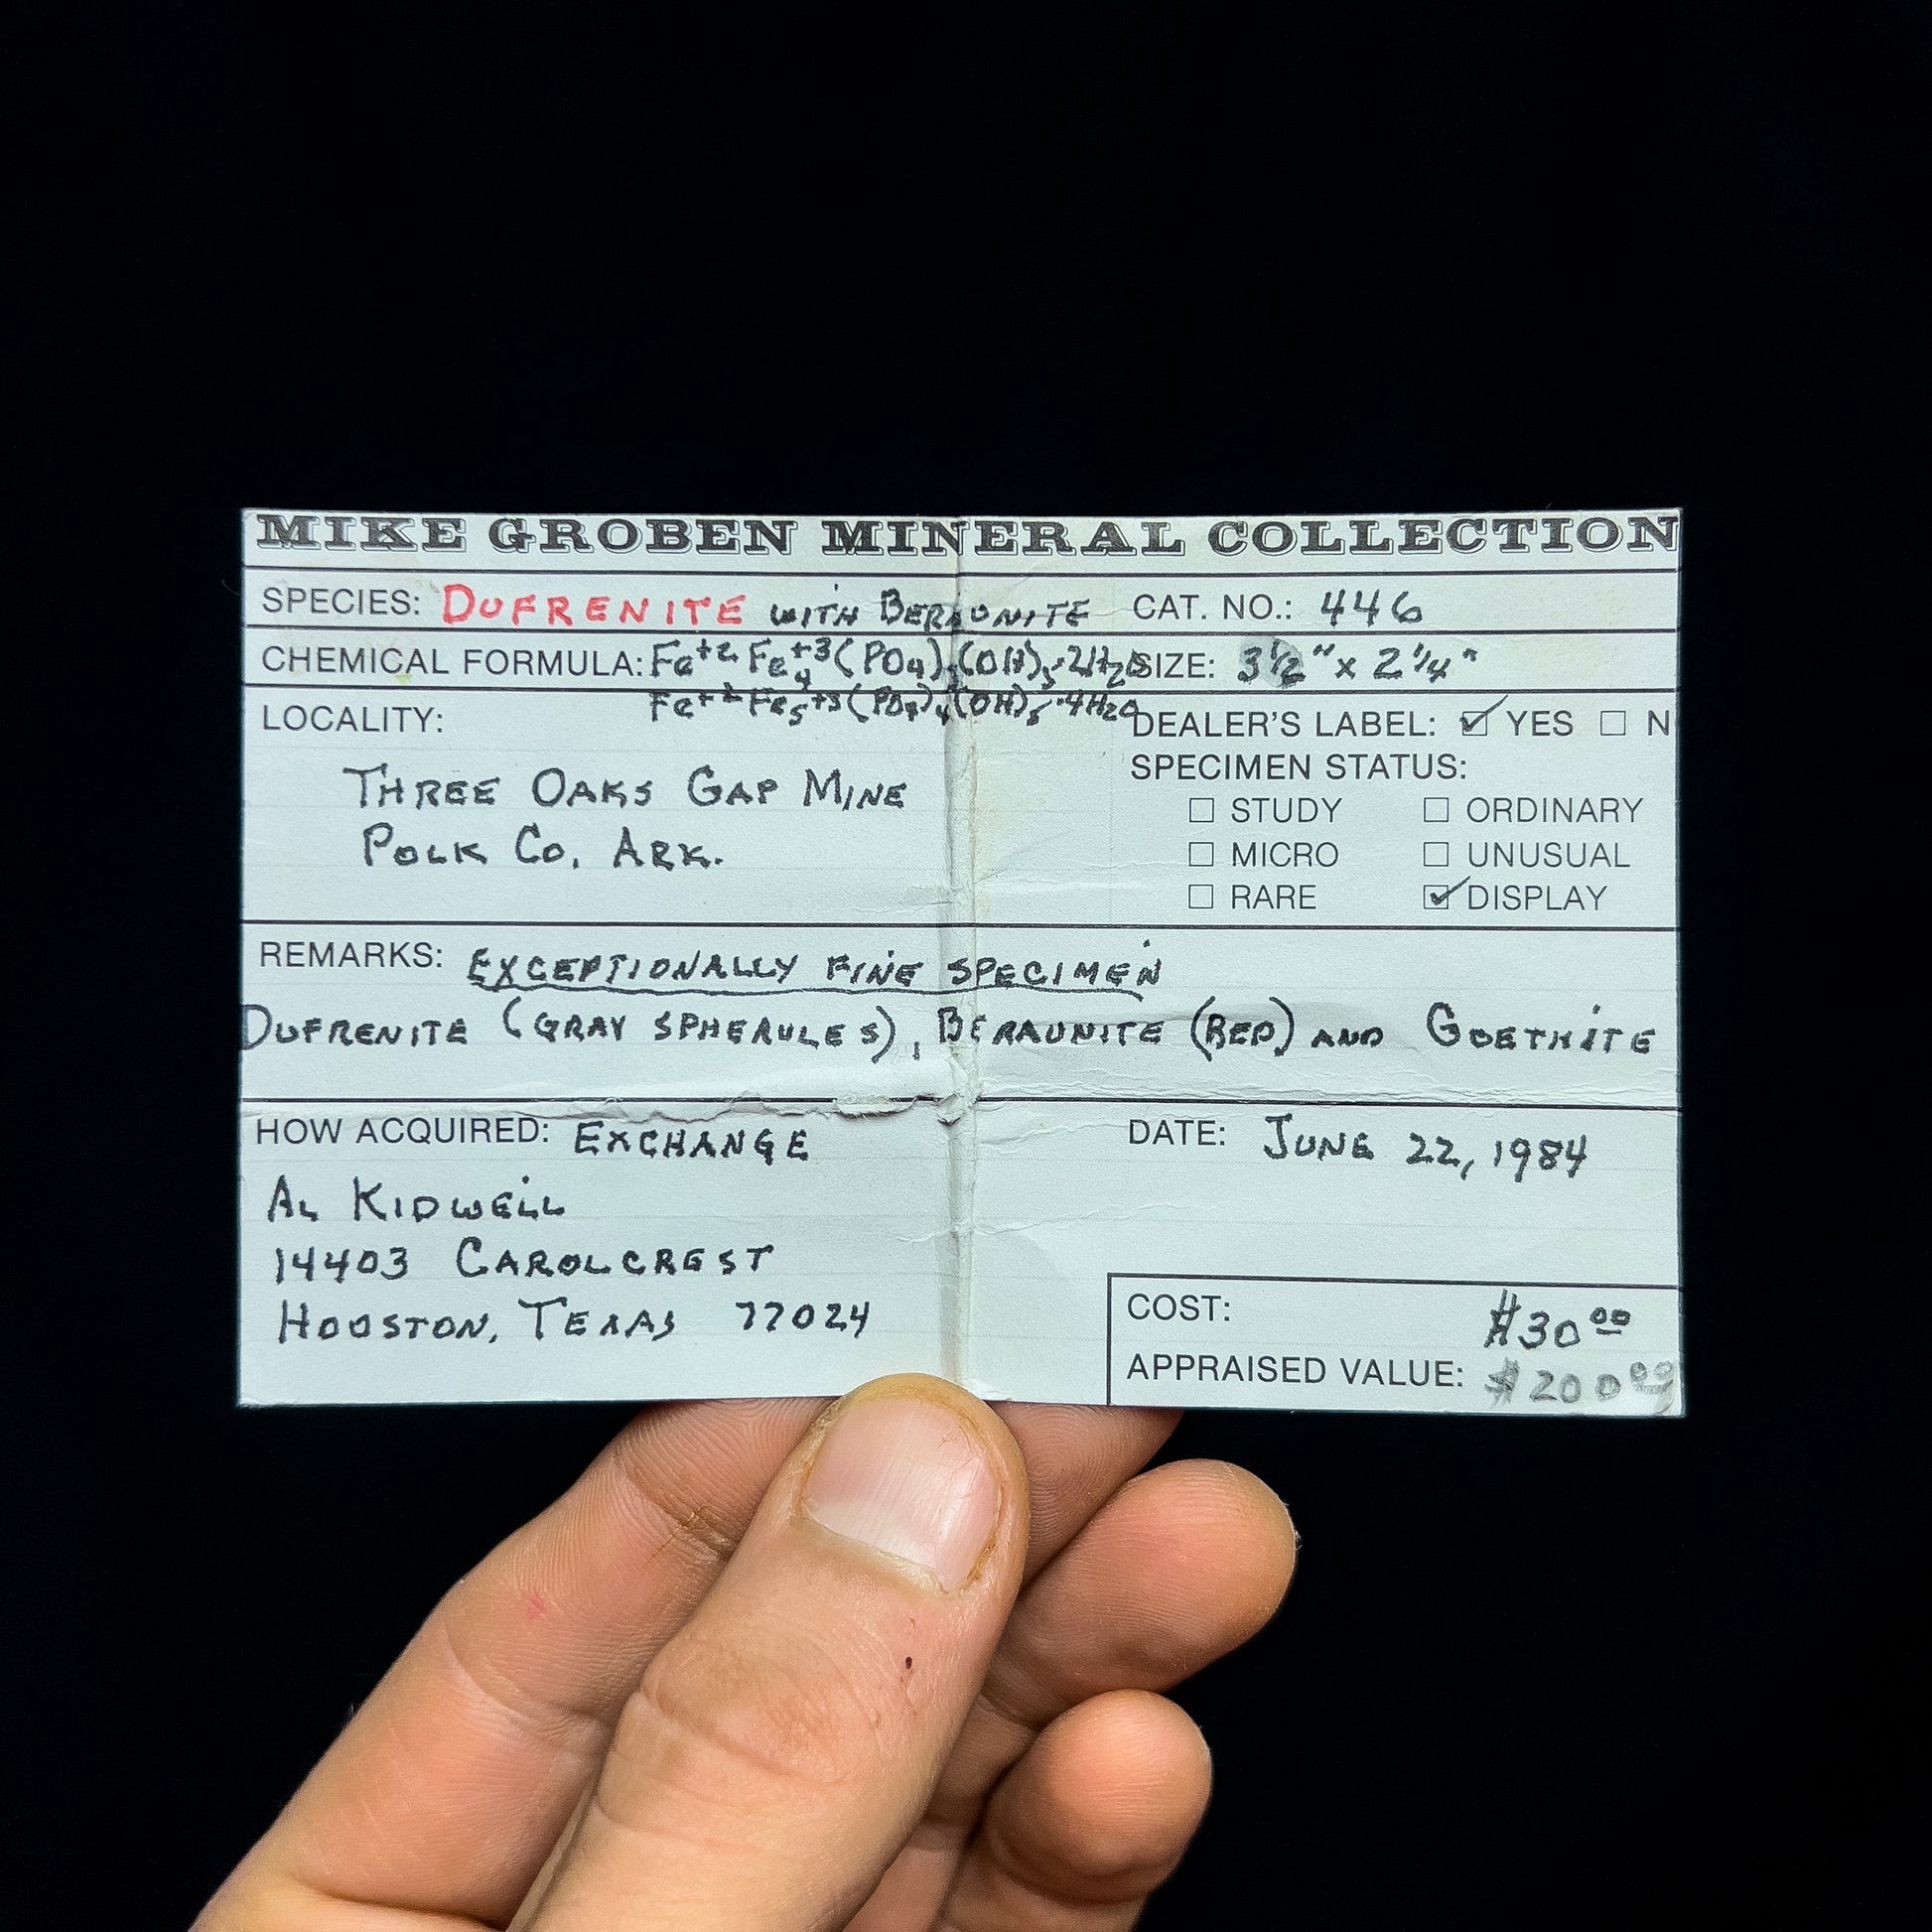 MIKE GROBEN MINERAL COLLECTION
SPECIES: DUFRENITE WITH BERAUNITE CAT. NO.: 446
CHEMICAL FORMULA: Fe+2 Fe4+3(PO4)3(OH)5·2H2O SIZE: 3 1/2" x 2 1/4"
Fe+2 Fe5+3(PO4)4(OH)5·4H2O
LOCALITY:
DEALER'S LABEL: ☑ YES ☐ N
SPECIMEN STATUS:
THREE OAKS GAP MINE
☐ STUDY ☐ ORDINARY
POLK CO, ARK.
☐ MICRO ☐ UNUSUAL
☐ RARE ☑ DISPLAY
REMARKS: EXCEPTIONALLY FINE SPECIMEN
DUFRENITE (GRAY SPHERULES), BERAUNITE (RED) AND GOETHITE
HOW ACQUIRED: EXCHANGE DATE: JUNE 22, 1984
AL KIDWELL
14403 CAROLCREST
HOUSTON, TEXAS 77024
COST: $30.00
APPRAISED VALUE: $200.00